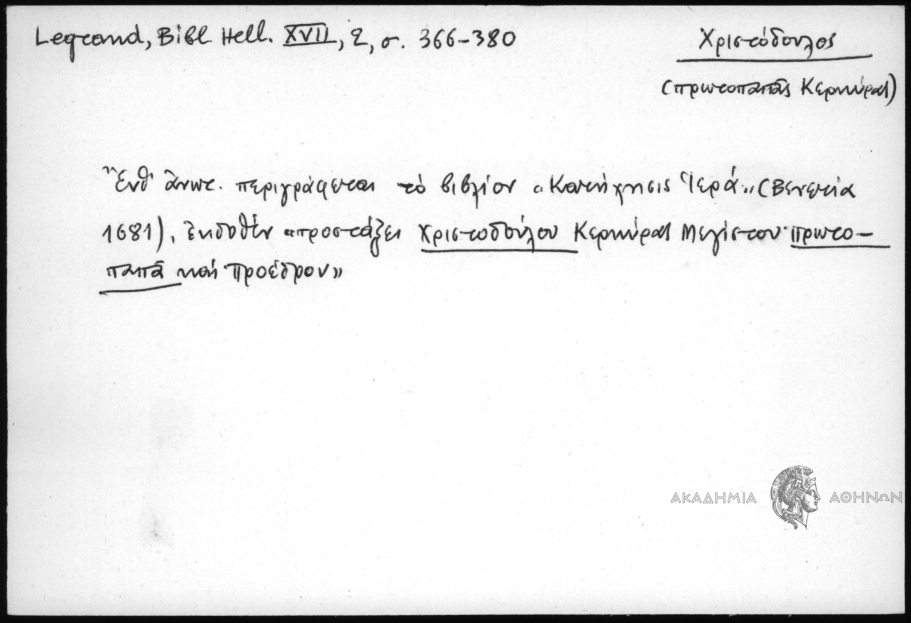 Legrand, Bibl. Hell. XVII, 2, σ. 366-380
Χριστόδουλος
(πρωτοπαπᾶς Κερκύρας)
Ἔνθ' ἄνωτ. περιγράφεται τὸ βιβλίον «Κατήχησις Ἱερά» (Βενετία
1681), ἐκδοθὲν «προστάξει Χριστοδούλου Κερκύρας Μεγίστου πρωτο-
παπᾶ καὶ Προέδρου»
ΑΚΑΔΗΜΙΑ ΑΘΗΝΩΝ